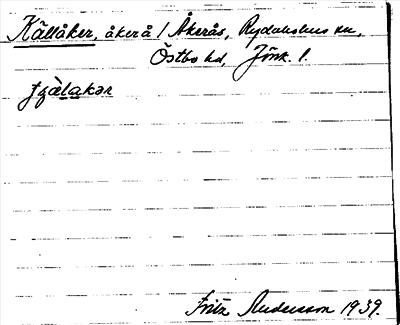 Källåker, åkrå / Åkerås, Rydaholms sn,
Östbo hd, Jönk. l.
Fritz Andersson 1939.